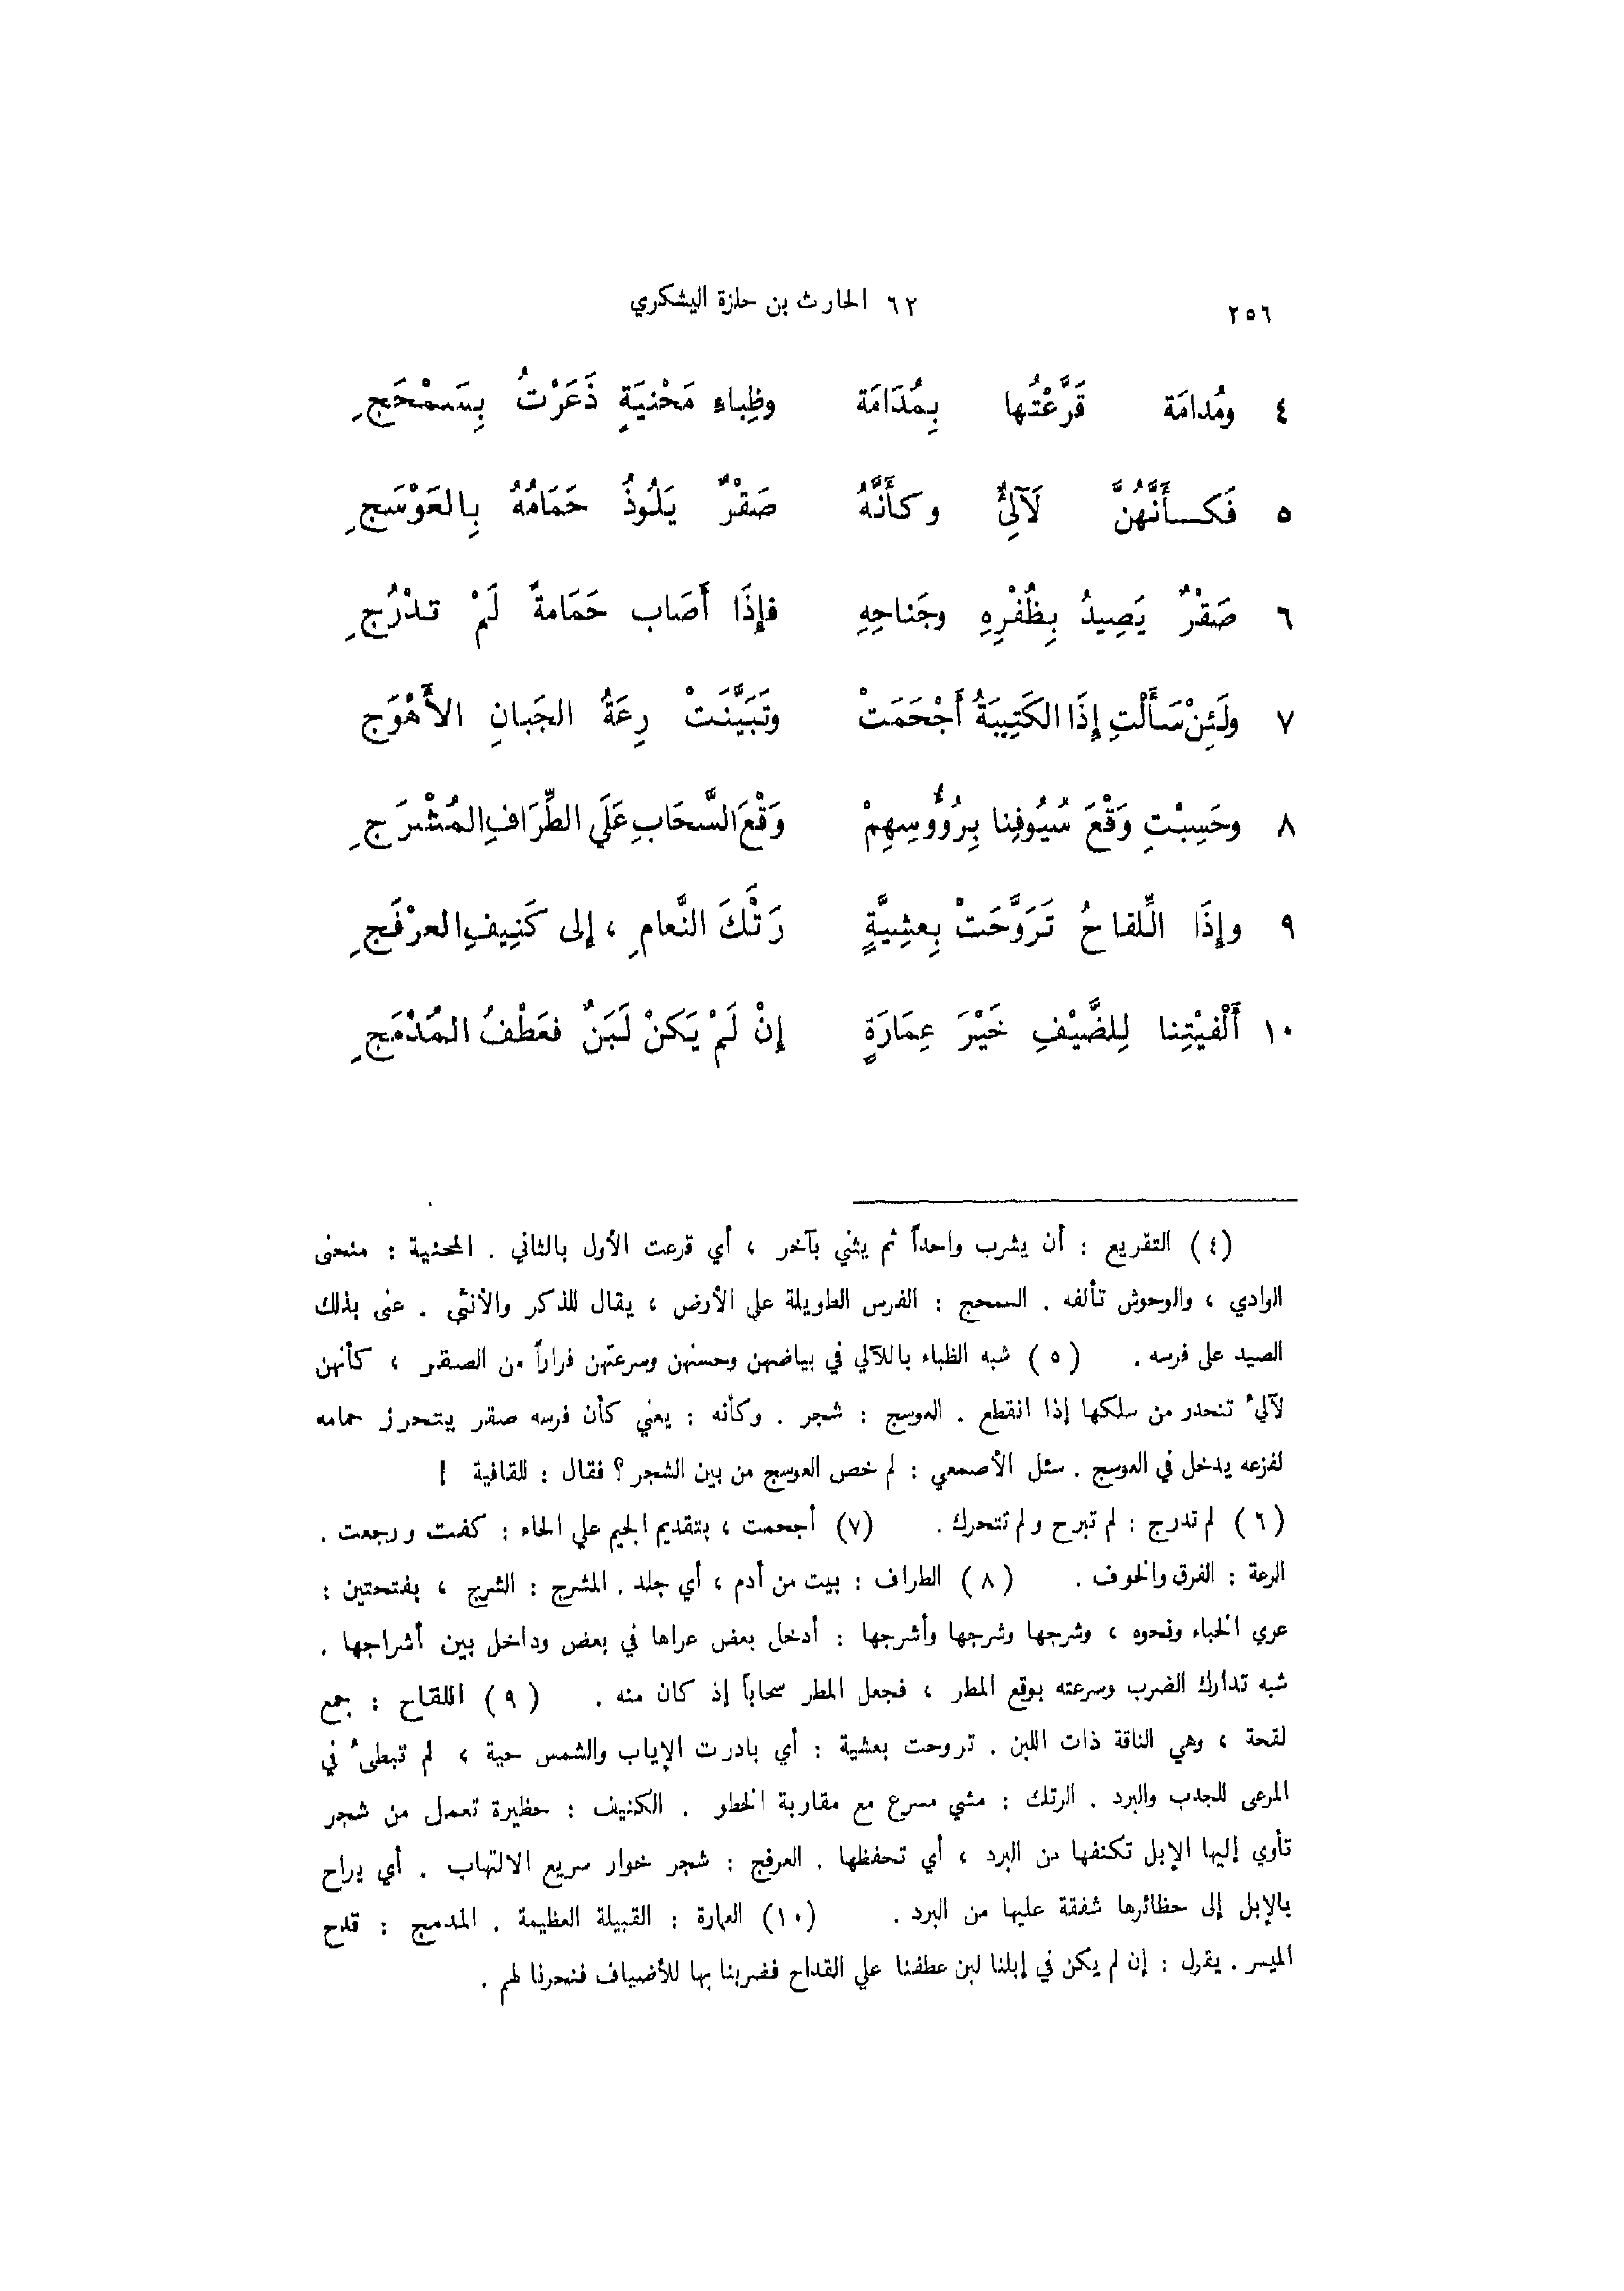 ٢٥٦ ٦٢ الحارث بن حلزة اليشكري
٤ ومُدامَة قَرَّعْتُها بِمُدَامَة وظِباءِ مَحْنيَةٍ ذَعَرْتُ بِسَمْحَجِ
٥ فَكأَنَّهُنَّ لَآلِئٌ وكأَنَّهُ صَقْرٌ يَلُوذُ حَمَامُهُ بِالعَوْسَجِ
٦ صَقْرٌ يَصِيدُ بِظُفْرِهِ وجَناحِهِ فإِذَا أَصَاب حَمَامةً لَمْ تدْرُجِ
٧ ولَئِنْ سَأَلْتِ إِذَا الكَتِيبَةُ أَجْحَمَتْ وتَبَيَّنَتْ رِعَةُ الجَبانِ الأَهْوَجِ
٨ وحَسِبْتِ وَقْعَ سُيُوفِنا بِرُؤُوسِهِمْ وَقْعَ السَّحَابِ عَلَى الطِّرَافِ المُشْرَجِ
٩ وإِذَا اللِّقاحُ تَرَوَّحَتْ بِعشِيَّةٍ رَتْكَ النَّعامِ ، إلى كَنِيفِ العرْفَجِ
١٠ أَلْفيْتِنا لِلضَّيْفِ خَيْرَ عِمَارَةٍ إِنْ لَمْ يَكنْ لَبَنٌ فعَطْفُ المُدْمَجِ
(٤) التقريع : أن يشرب واحداً ثم يثني بآخر ، أي قرعت الأول بالثاني . المحنية : منحنى
الوادي ، والوحوش تألفه . السمحج : الفرس الطويلة على الأرض ، يقال للذكر والأنثى . عنى بذلك
الصيد على فرسه . (٥) شبه الظباء باللآلي في بياضهن وحسنهن وسرعتهن فراراً من الصقر ، كأنهن
لآلئ تنحدر من سلكها إذا انقطع . العوسج : شجر . وكأنه : يعني كأن فرسه صقر يتحرز حمامه
لفزعه يدخل في العوسج . سئل الأصمعي : لم خص العوسج من بين الشجر ؟ فقال : للقافية !
(٦) لم تدرج : لم تبرح ولم تتحرك . (٧) أجحمت ، بتقديم الجيم على الحاء : كفت ورجعت .
الرعة : الفرق والخوف . (٨) الطراف : بيت من أدم ، أي جلد . المشرج : الشرج ، بفتحتين :
عرى الخباء ونحوه ، وشرجها وشرجها وأشرجها : أدخل بعض عراها في بعض وداخل بين أشراجها .
شبه تدارك الضرب وسرعته بوقع المطر ، فجعل المطر سحاباً إذ كان منه . (٩) اللقاح : جمع
لقحة ، وهي الناقة ذات اللبن . تروحت بعشية : أي بادرت الإياب والشمس حية ، لم تبطئ في
المرعى للجدب والبرد . الرتك : مشي مسرع مع مقاربة الخطو . الكنيف : حظيرة تعمل من شجر
تأوي إليها الإبل تكنفها من البرد ، أي تحفظها . العرفج : شجر خوار سريع الالتهاب . أي يراح
بالإبل إلى حظائرها شفقة عليها من البرد . (١٠) العمارة : القبيلة العظيمة . المدمج : قدح
الميسر . يقول : إن لم يكن في إبلنا لبن عطفنا على القداح فضربنا بها للأضياف فنحرنا لهم .